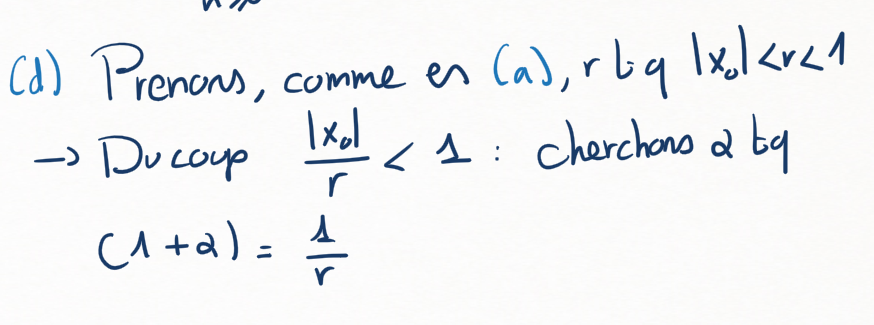 (d) Prenons, comme en (a), r tq |x₀| < r < 1
→ Du coup |x₀|/r < 1 : cherchons α tq
(1 + α) = 1/r